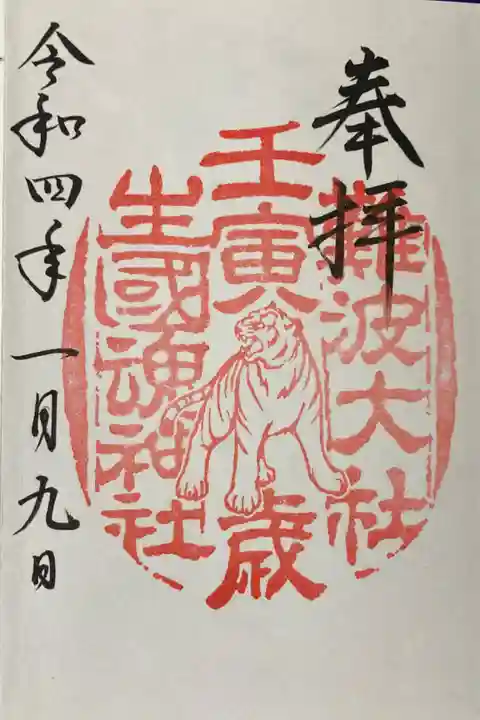 奉拝
難波大社
壬寅歳
生國魂神社
令和四年一月九日